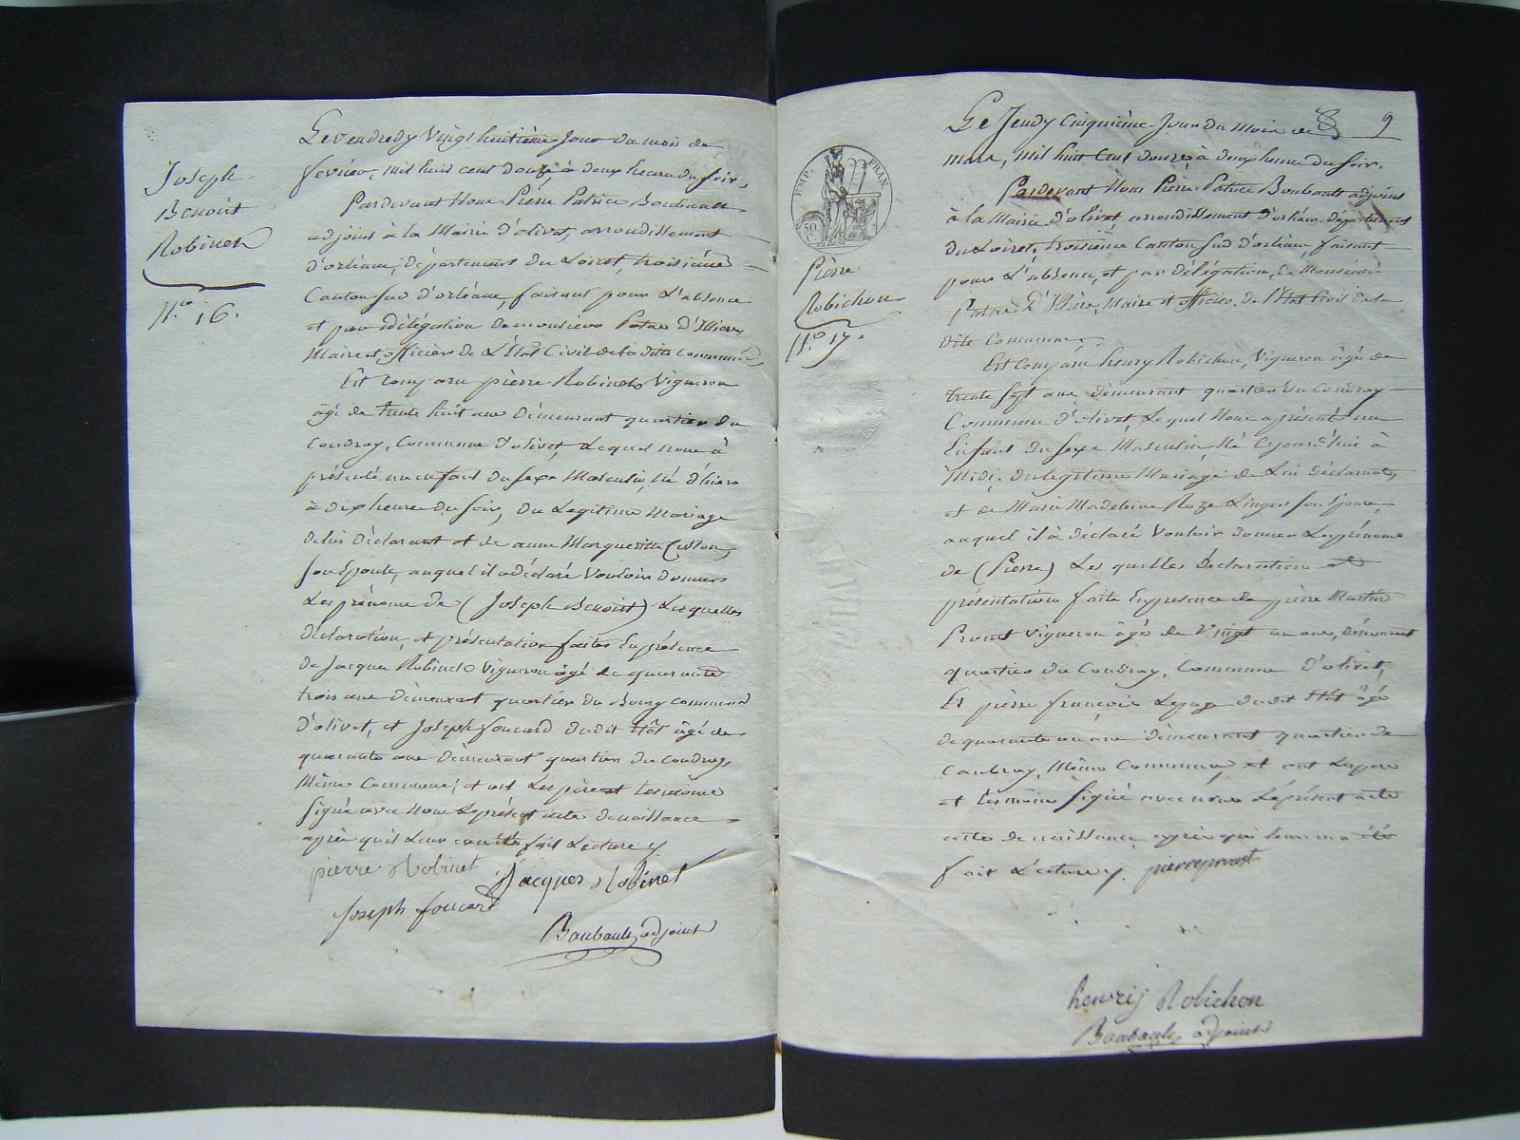 Joseph
Benoist
Robinet
N.ro 16.
Le vendredy Vingt huitième Jour du mois de
fevrier, mil huit cent douze, à deux heures du soir,
Pardevant Nous Pierre Patrice Boubault
adjoint à la Mairie d'olivet, arrondissement
d'orléans, département du Loiret, troisième
Canton sud d'orléans, faisant pour L'absence
et par délégation de monsieur Patas d'Illiers
Maire et officier de L'Etat Civil de la dite commune,
Est comparu pierre Robinet Vigneron
âgé de trente huit ans demeurant quartier du
Coudray, Commune d'olivet, Lequel nous à
présenté un enfant du sexe Masculin, Né d'hiere
à dix heures du soir, du Legitime Mariage
de lui déclarant et de anne Margueritte
son Epouse, auquel il a déclaré Vouloir donner
Les prénoms de (Joseph Benoist) Lesquelles
déclaration, et présentation faites En présence
de Jacques Robinet Vigneron âgé de quarante
trois ans demeurant quartier du Bourg commune
d'olivet, et Joseph foucard dudit Etât âgé de
quarante ans demeurant quartier du Coudray,
Même Commune; et ont Les père et temoins
signé avec Nous Le présent acte de naissance
après qu'il Leur en a été fait Lecture
pierre Robinet Jacques Robinet
Joseph foucard
Boubault, adjoint
9
Le Jeudy Cinquième Jour du Mois de
mars, mil huit Cent douze, à deux heures du soir.
EMP. FRAN.
50
Pierre
Robichon
N.o 17.
Pardevant Nous Pierre Patrice Boubault adjoint
à la Mairie d'olivet arrondissement d'orléans, département
du Loiret, troisième Canton sud d'orléans, faisant
pour L'absence, et par délégation, de Monsieur
Patas d'Illiers, Maire et officier de l'Etat Civil de la
dite Commune,
Est Comparu henry Robichon, Vigneron âgé de
trente sept ans demeurant quartier du Coudray
Commune d'olivet, Lequel Nous a présenté un
Enfant du sexe Masculin, Né Cejourd'hui à
Midi, du legitime Mariage de Lui déclarant,
et de Marie Madeleine Roze son Epouse,
auquel il à déclaré Vouloir donner Le prénom
de (Pierre) Les quelles déclaration et
présentation faite En presence de pierre Martin
Provost Vigneron âgé de Vingt un ans, demeurant
quartier du Coudray, Commune d'olivet,
Et pierre françois Lepage dudit Etât âgé
de quarante un ans demeurant quartier de
Caubray, Même Commune, et ont Le pere
et temoins signé avec nous Le présent acte
acte de naissance après qui leur en a été
fait Lecture
pierre provost
henrij Robichon
Boubault, adjoint